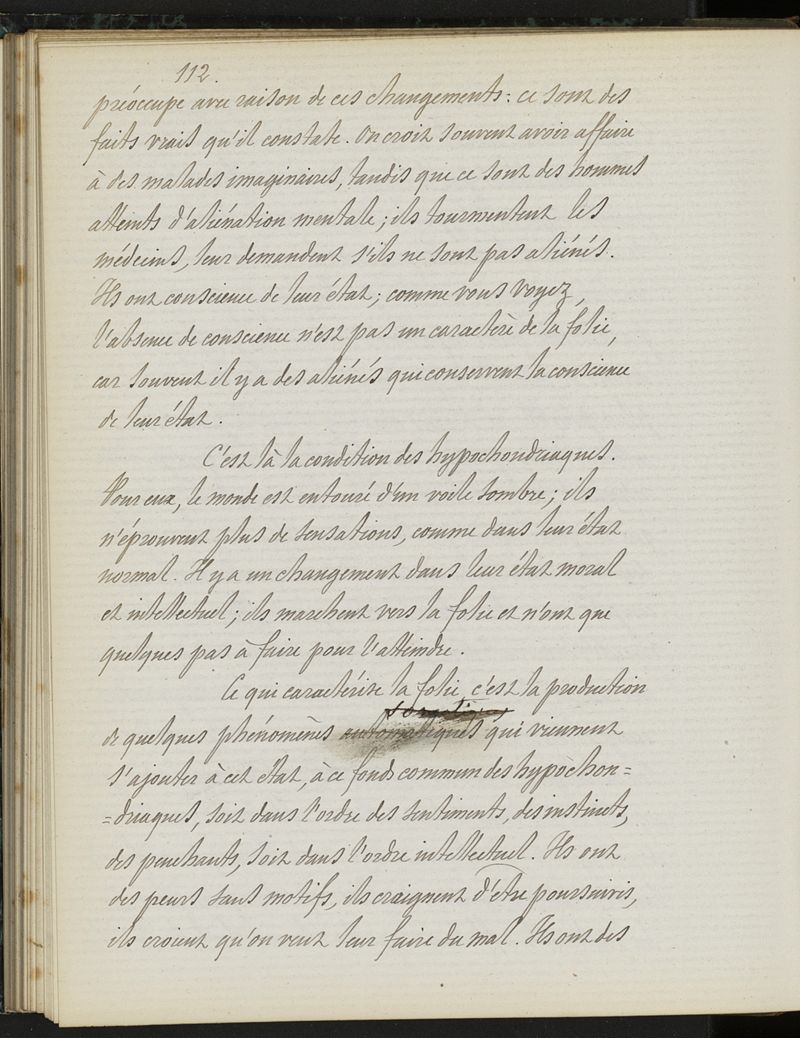 112.
préoccupe avec raison de ces changements : ce sont des
faits vrais qu'il constate. On croit souvent avoir affaire
à des malades imaginaires, tandis que ce sont des hommes
atteints d'aliénation mentale ; ils tourmentent les
médecins, leur demandent s'ils ne sont pas aliénés.
Ils ont conscience de leur état ; comme vous voyez,
l'absence de conscience n'est pas un caractère de la folie,
car souvent il y a des aliénés qui conservent la conscience
de leur état.
C'est là la condition des hypochondriaques.
Pour eux, le monde est entouré d'un voile sombre ; ils
n'éprouvent plus de sensations, comme dans leur état
normal. Il y a un changement dans leur état moral
et intellectuel ; ils marchent vers la folie et n'ont que
quelques pas à faire pour l'atteindre.
Ce qui caractérise la folie, c'est la production
de quelques phénomènes automatiques qui viennent
s'ajouter à cet état, à ce fonds commun des hypochon=
=driaques, soit dans l'ordre des sentiments, des instincts,
des penchants, soit dans l'ordre intellectuel. Ils ont
des peurs sans motifs, ils craignent d'être poursuivis,
ils croient qu'on veut leur faire du mal. Ils ont des